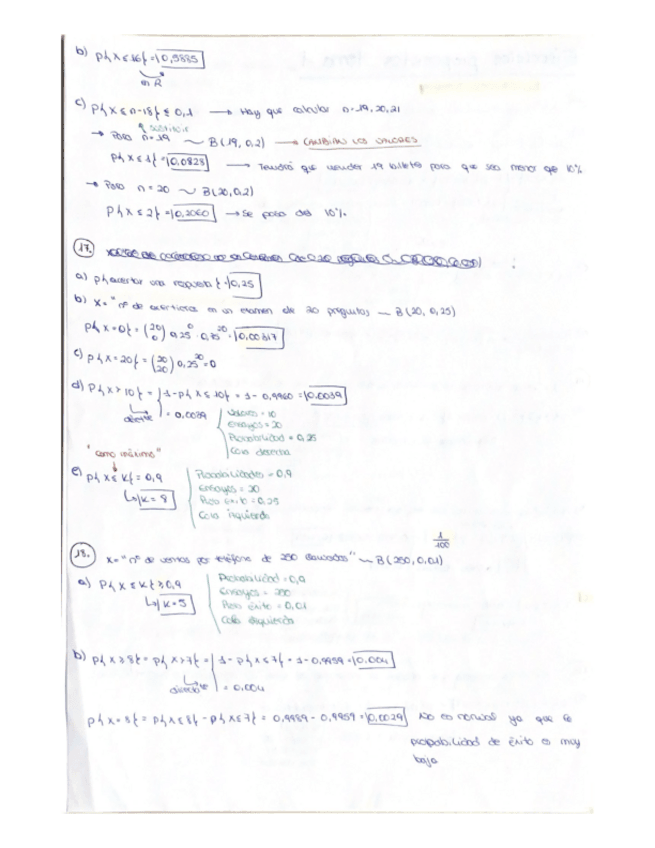 b) P{X ≤ 16} = 0,9885
en R
c) P{X ≤ n-18} ≤ 0,1 → Hay que calcular n=19,20,21
sustituir
→ Para n=19 ~ B(19,0,2) → CAMBIAN LOS VALORES
P{X ≤ 1} = 0,0828 → Tendrá que vender 19 billetes para que sea menor que 10%
→ Para n=20 ~ B(20,0,2)
P{X ≤ 2} = 0,2060 → Se pasa del 10%.
17.
a) P{acertar una respuesta} = 0,25
b) X = "nº de aciertos en un examen de 20 preguntas — B(20, 0,25)
P{X=0} = (20 0) 0,25^0 · 0,75^20 = 0,00317
c) P{X=20} = (20 20) 0,25^20 = 0
d) P{X > 10} = 1 - P{X ≤ 10} = 1 - 0,9960 = 0,0039
directo = 0,0039
Valores = 10
Ensayos = 20
Probabilidad = 0,25
Cola derecha
"como máximo"
e) P{X ≤ K} = 0,9
↳ K = 8
Probabilidades = 0,9
Ensayos = 20
Prob éxito = 0,25
Cola izquierda
1/100
18. X = "nº de ventas por teléfono de 250 llamadas" ~ B(250, 0,01)
a) P{X ≤ K} ≥ 0,9
↳ K = 5
Probabilidad = 0,9
Ensayos = 250
Prob éxito = 0,01
Cola izquierda
b) P{X ≥ 8} = P{X > 7} = 1 - P{X ≤ 7} = 1 - 0,9959 = 0,004
directo = 0,004
P{X = 8} = P{X ≤ 8} - P{X ≤ 7} = 0,9989 - 0,9959 = 0,0029 No es normal ya que la
probabilidad de éxito es muy
baja